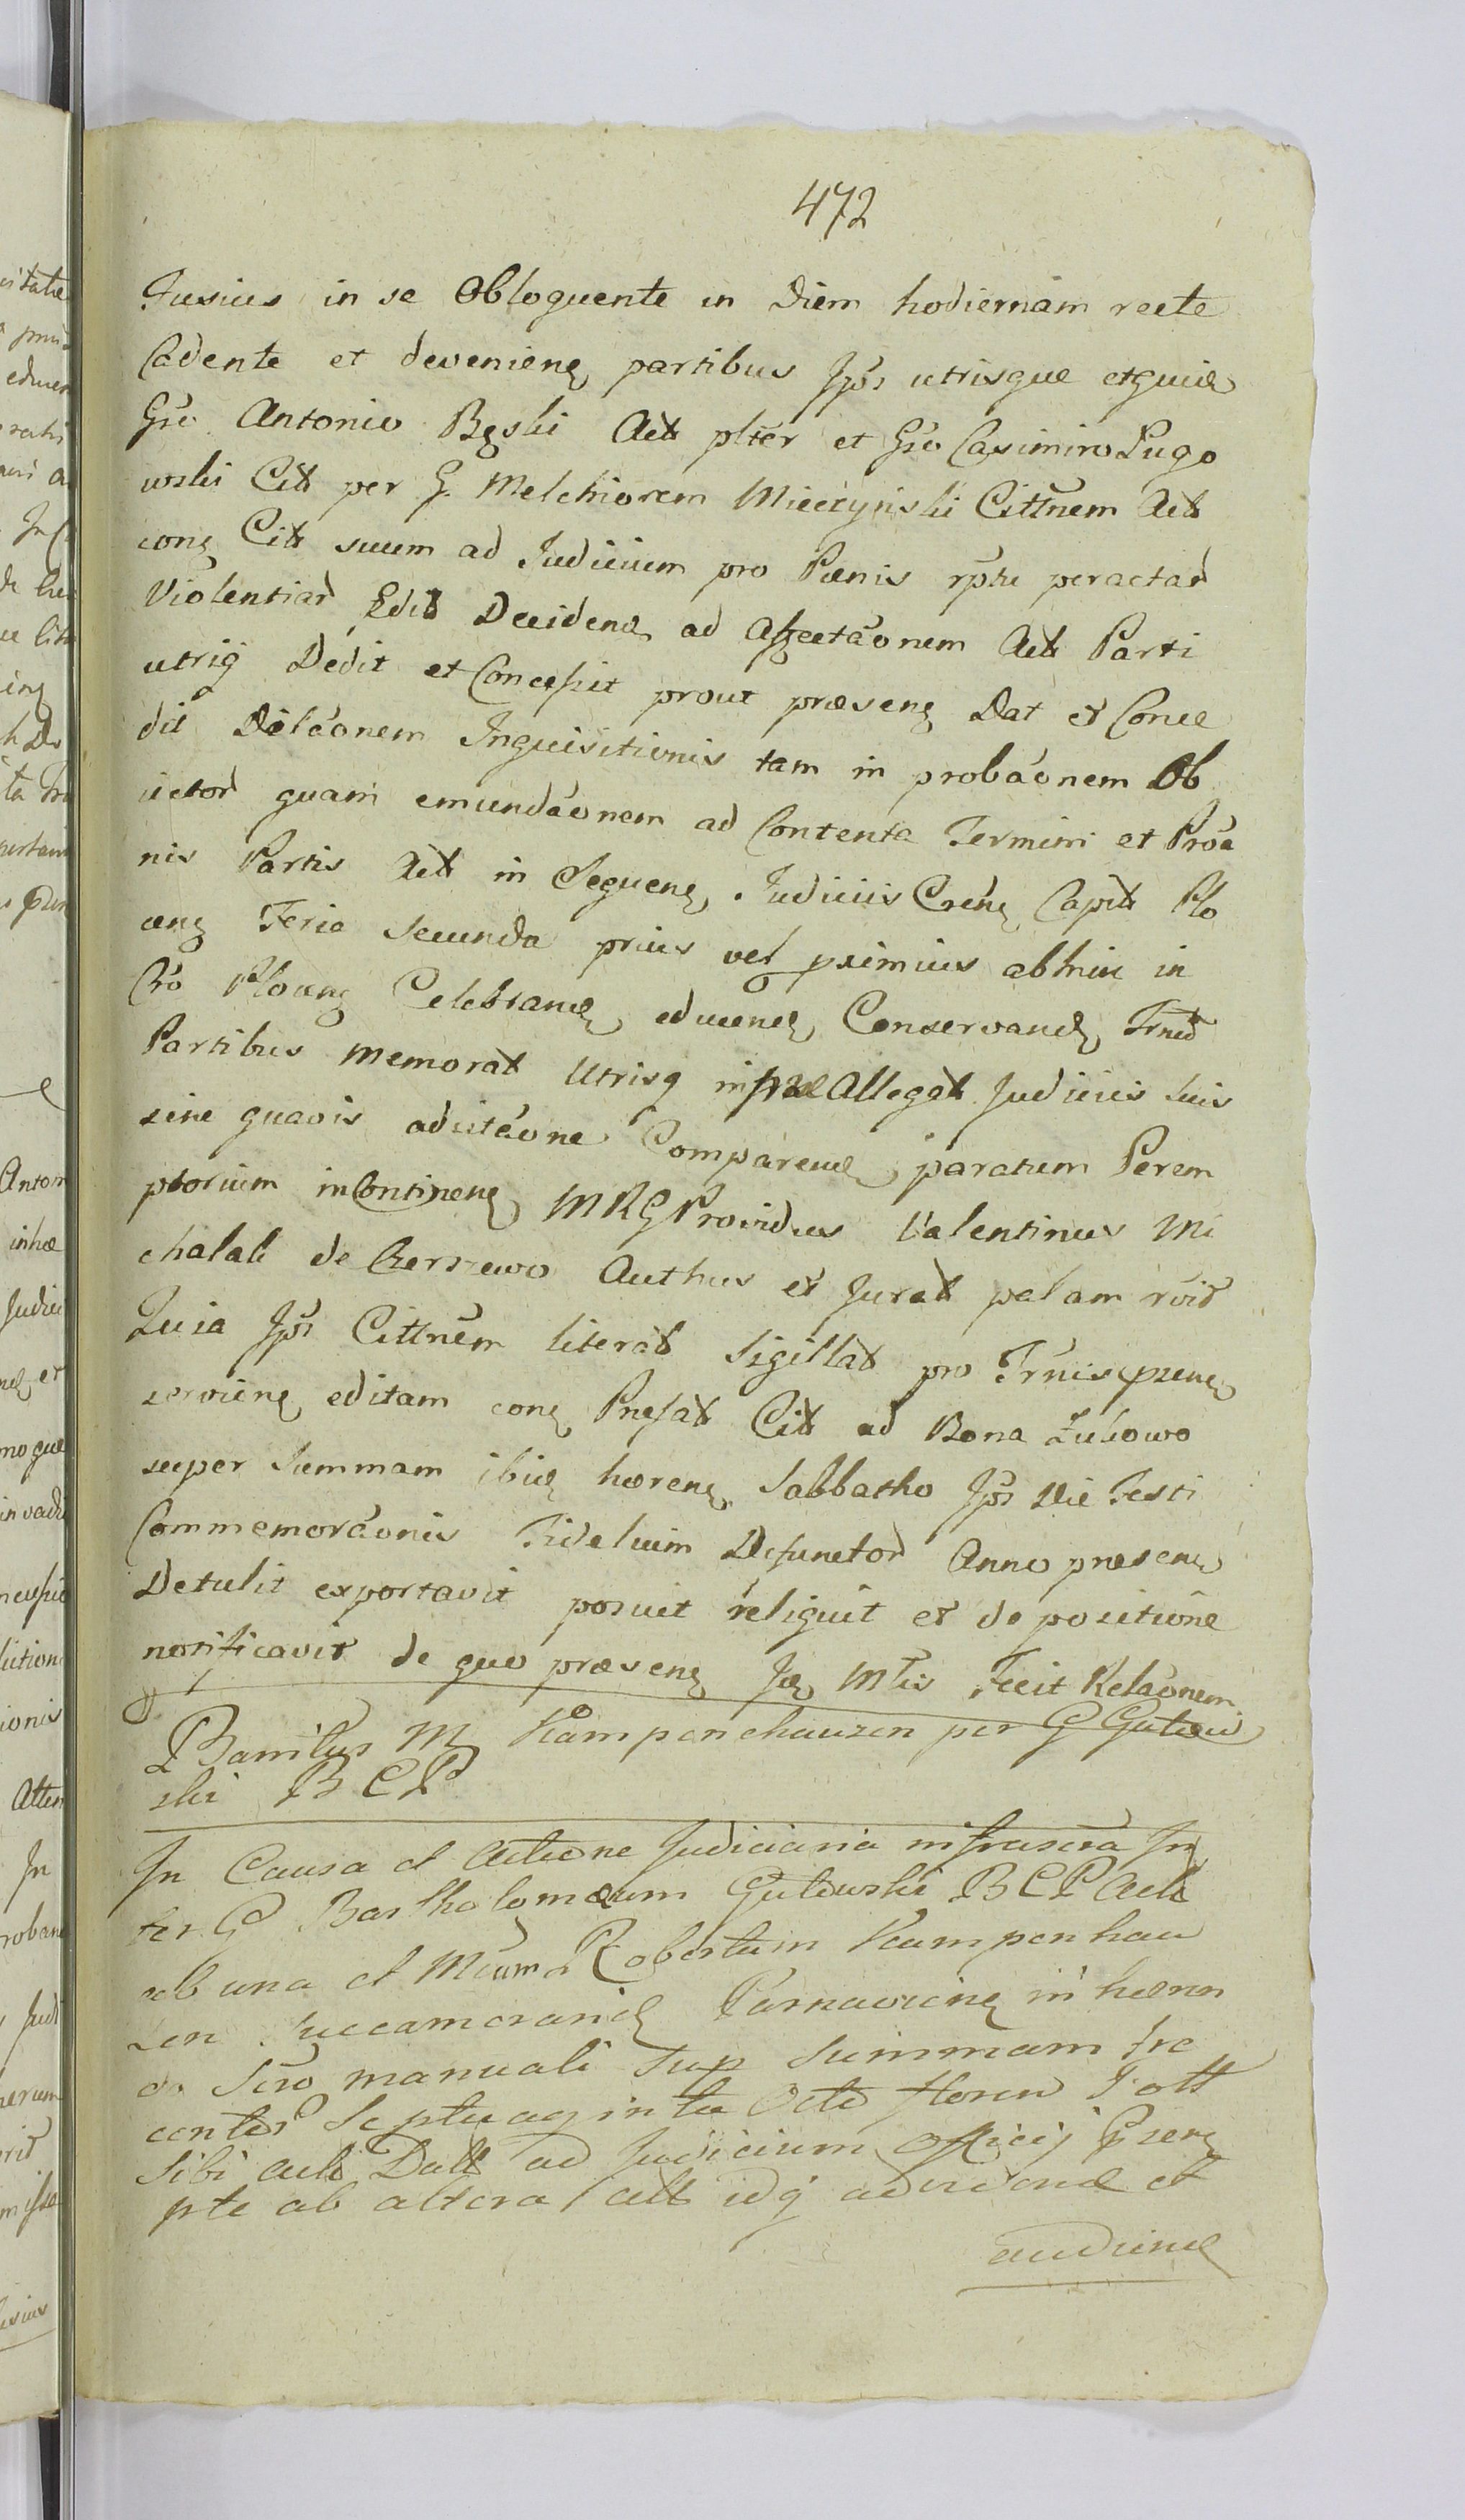 472
Fusius in se Obloquente in Diem hodiernam recte
Cadente et devenien partibus Ipōs utrisque etquid
Gso Antonio Bęski Act plter et Gso Casimiro Ługo
wski Citt per G. Melchiorem Mieczyński Cittnem Act
con Citt suum ad Judicium pro Pœnis rptu peractar
Violentiar Edit Deciden ad affectaōnem Act Parti
utriq Dedit et Concessit prout præsen Dat et Conce
dit Dilaōnem Inquisitionis tam in probaōnem Ob
jector quam emundaōnem ad Contenta Termini et Proa
nis Partis Act in Sequen Judiciis Cren Capit Plo
cen Feria Secunda prius vel pximius abhinc in
Cro Plocen Celebran educen Conservan Trnd
Partibus memorat Utrisq in præ Allegat Judiciis suis
sine quavis adcitaōne Comparen paratum Perem
ptorium in Continen MRG Providus Valentinus Mi
chalak de Cierszewo Authus et Jurat palam rvit
Quia Ipōs Cittnem literat Sigillat pro Trnis pzen
servien editam con Prefat Citt ad Bona Żukowo
super Summam ibid hœren Sabbatho Ipōs Die Festi
Commemoraōnis Fidelium Defunctor Anno præsen
Detulit exportavit posuit reliquit et de positione
notificavit de quo præsen Mtis Fecit Relaōnem
M Kampenchauzen per G Gutow
ski B C P
In Causa et Actione Judiciaria infrascra In
ter G Bartholomæum Gutowski B C P Act
ab una et Mcum Robertum Kampenhau
zen Succameran Parnavien in hœren
do Scro manuali sup Summam tre
centor Septuaginta Octo floren Pott
Sibi Act Datt ad Judicium Officij Pzen
pte ab altera Citt idq adviden et
audien